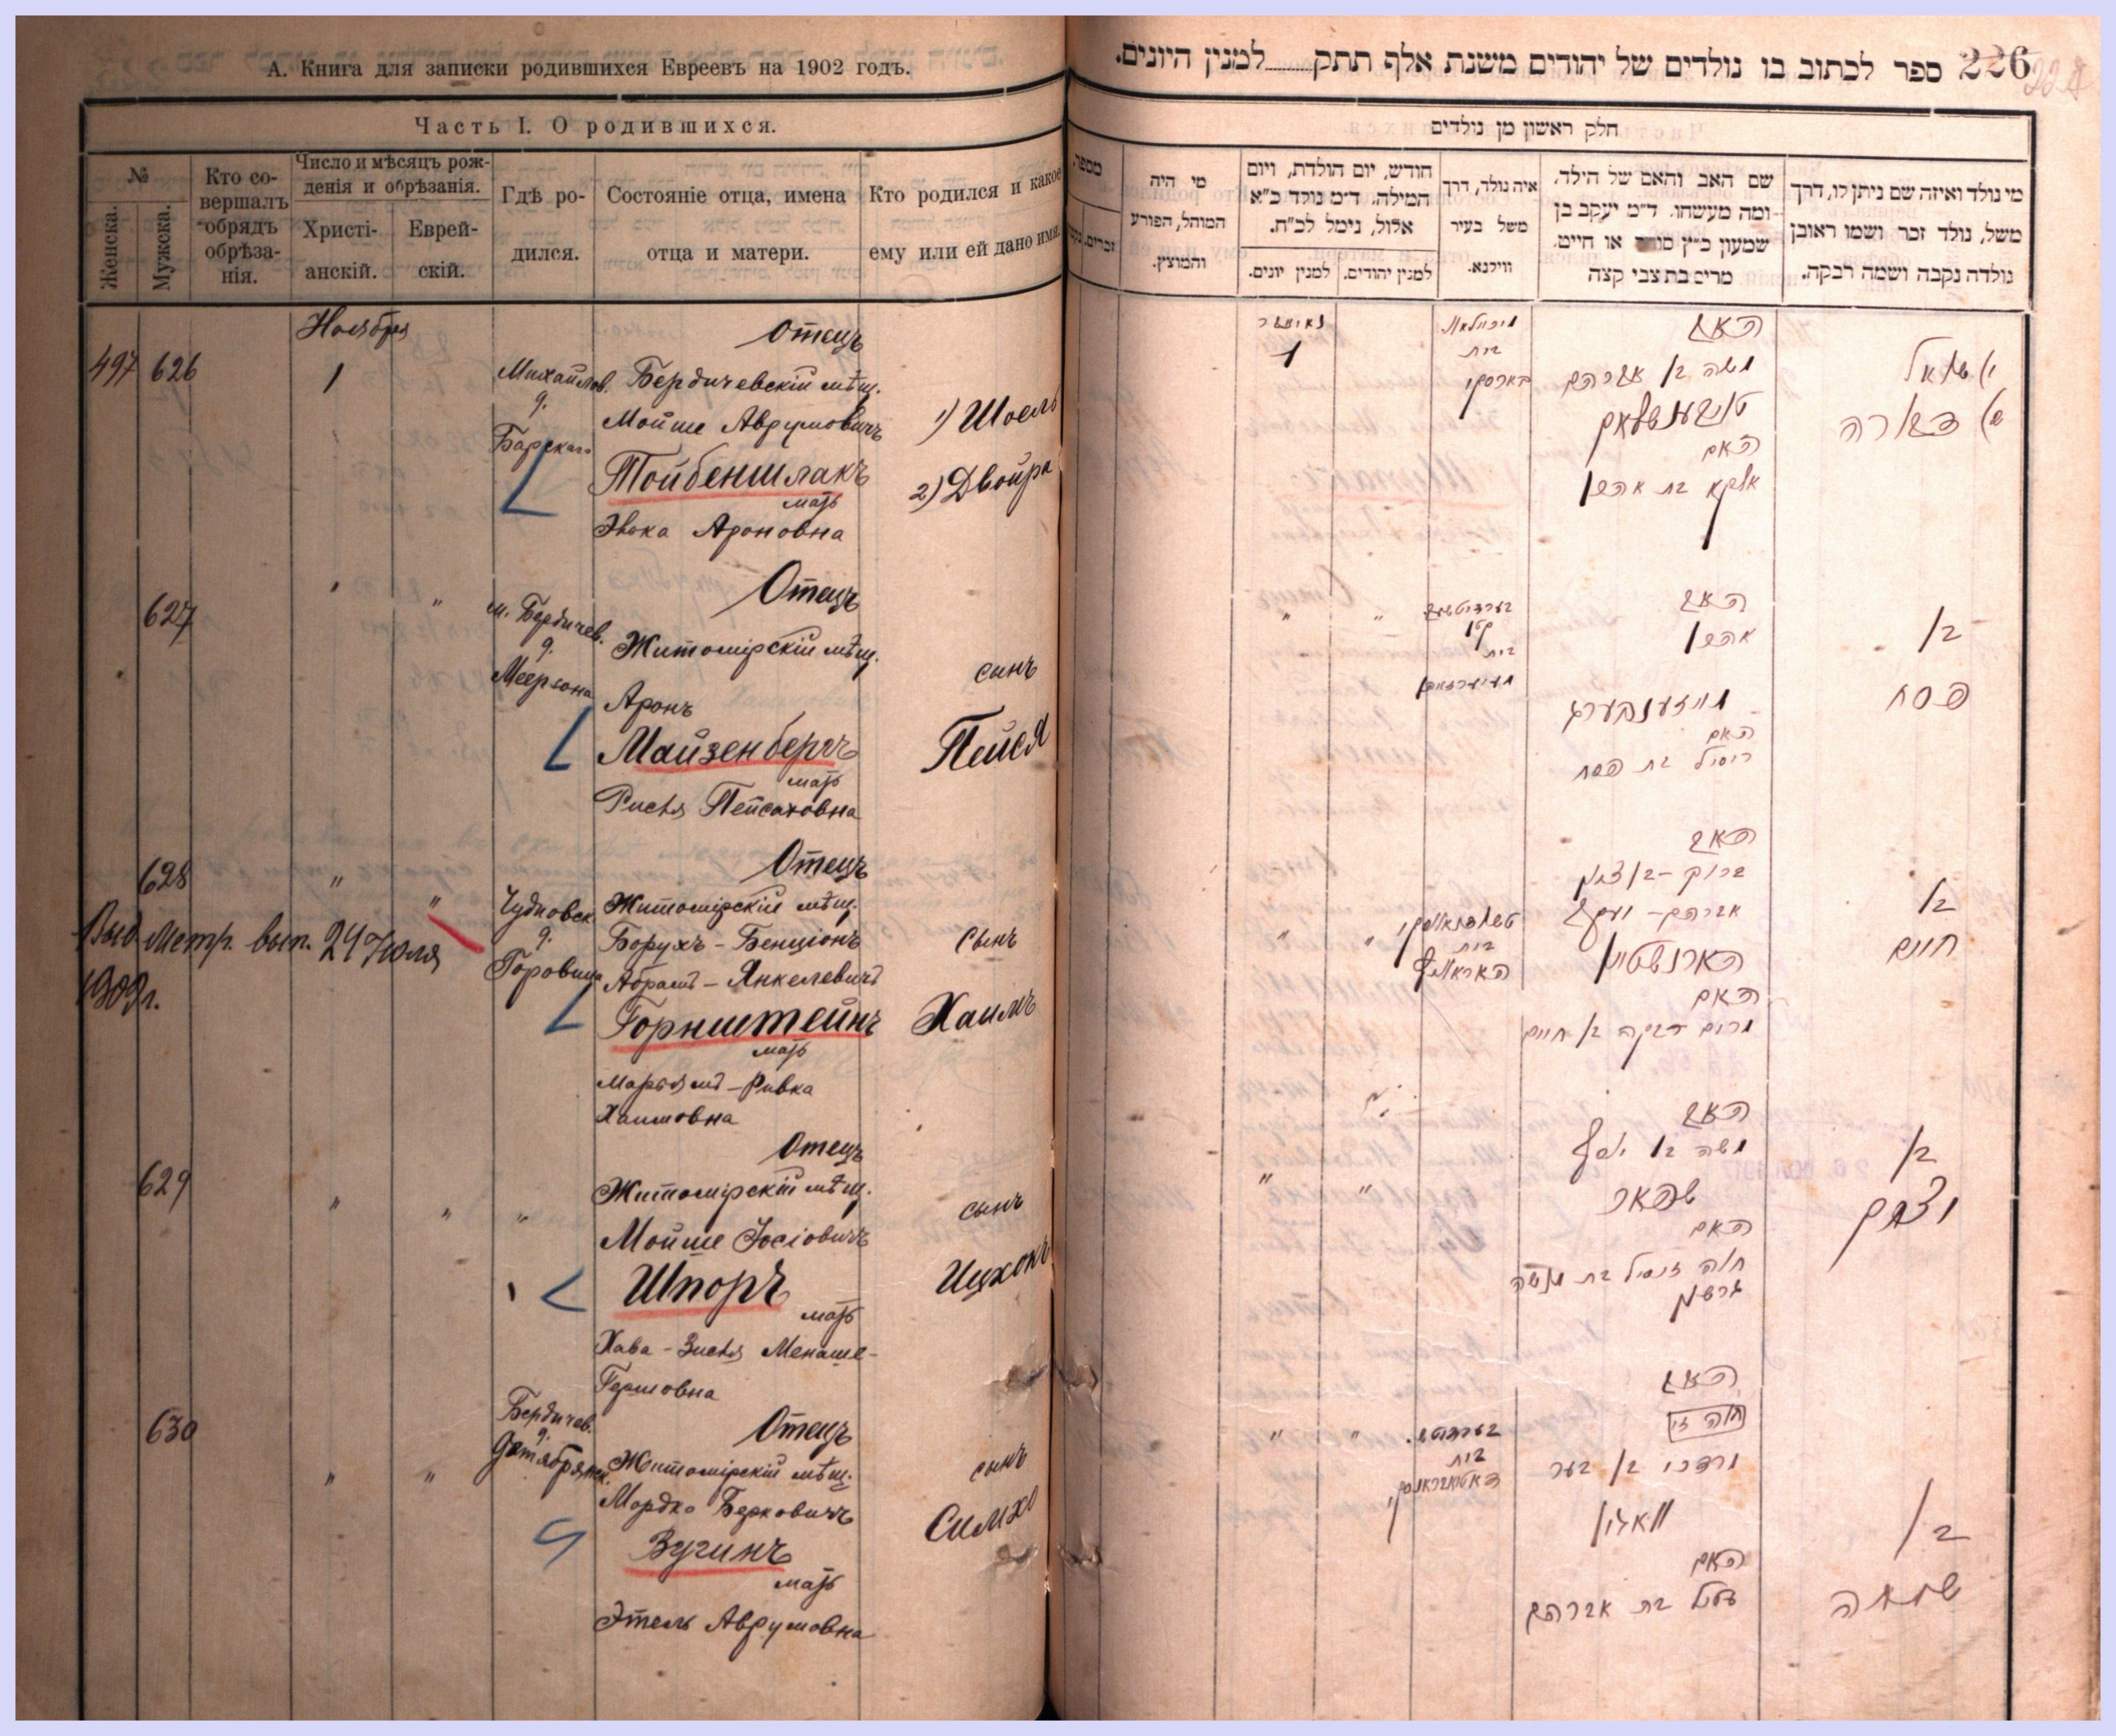 А. Книга для записки родившихся Евреевъ на 1902 годъ.
Часть I. О родившихся.
№
Женска.
Мужска.
Кто со-
вершалъ
обрядъ
обрѣза-
нія.
Число и мѣсяцъ рож-
денія и обрѣзанія.
Христі-
анскій.
Еврей-
скій.
Гдѣ ро-
дился.
Состояніе отца, имена
отца и матери.
Кто родился и какое
ему или ей дано имя.
Ноября
497 626 1
Михайлов.
Барскаго
Отецъ
Бердичевскій мѣщ.
Мойше Аврумовичъ
Тойбеншлакъ
мать
Эвока Ароновна
1) Шоель
2) Двойра
627 " "
м. Бердичев.
Меерзона
Отецъ
Житомірскій мѣщ.
Аронъ
Майзенбергъ
мать
Рисья Пейсаховна
сынъ
Пейся
628 " "
Выд метр. вып. 24 Юля
1909 г.
Чудновск.
Горовица
Отецъ
Житомірскій мѣщ.
Борухъ-Бенціонъ
Абрамъ-Янкелевичъ
Горнштейнъ
мать
Марьямъ-Ривка
Хаимовна
сынъ
Хаимъ
629 " " "
Отецъ
Житомірскій мѣщ.
Мойше Іосіовичъ
Шпоръ
мать
Хава-Зисья Менаше-
Гершовна
сынъ
Ицхокъ
630 " "
Бердичев.
Отецъ
Житомірскій мѣщ.
Мордко Берковичъ
Вугинъ
мать
Этель Аврумовна
сынъ
Симхо
226 ספר לכתוב בו נולדים של יהודים משנת אלף תתק למנין היונים.
חלק ראשון מן נולדים
מי נולד ואיזה שם ניתן לו, דרך
משל, נולד זכר ושמו ראובן
נולדה נקבה ושמה רבקה.
שם האב והאם של הילד,
ומה מעשהו. ד״מ יעקב בן
שמעון כ״ץ או חייט.
מרים בת צבי קצה
איה נולד, דרך
משל בעיר
ווילנא.
חודש, יום הולדת, ויום
המילה, ד״מ נולד כ״א
אלול, נימל לכ״ח.
למנין יהודים.
למנין יונים.
מי היה
המוהל, הפורע
והמוצץ.
מספר.
זכרים.
האב
משה בן אברהם
האם
בת אהרן
1
בית
האב
אהרן
מייזענבערג
האם
רייסיל בת פסח
" "
בית
בן
פסח
האב
ברוך-בן ציון
אברהם-יעקב
הארנשטיין
האם
מרים רבקה בן חיים
" "
בית
בן
חיים
האב
משה בן יוסף
שפאר
האם
חוה זיסיל בת מנשה
" "
בן
יצחק
האב
מרדכי בן בער
האם
עטיל בת אברהם
" "
בית
בן
שמחה